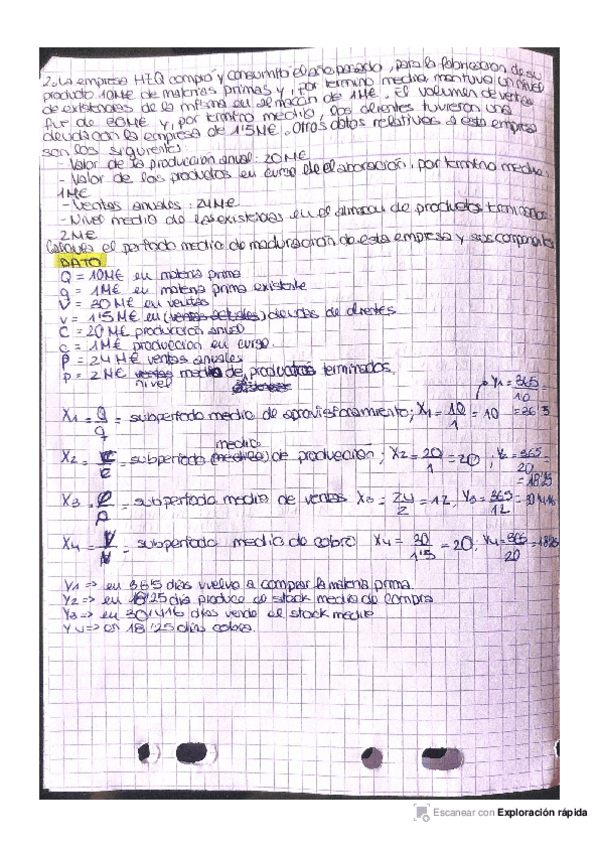 2. La empresa HZQ compró y consumió el año pasado, para la fabricación de su
producto 10M€ de materias primas y, por termino medio, mantuvo un nivel
de existencias de la misma en el almacen de 1M€. El volumen de ventas
fue de 30M€ y, por termino medio, los clientes tuvieron una
deuda con la empresa de 1'5M€. Otros datos relativos a esta empresa
son los siguientes:
- Valor de la produccion anual: 20M€
- Valor de los productos en curso de elaboración, por termino medio:
1M€
- Ventas anuales: 24M€
- Nivel medio de las existencias en el almacen de productos terminados:
2M€
Calcules el periodo medio de maduración de esta empresa y sus componentes
DATO
Q = 10M€ en materia prima
q = 1M€ en materia prima existente
V = 30M€ en ventas
v = 1'5M€ en (ventas actuales) deudas de clientes
C = 20M€ producción anual
c = 1M€ produccion en curso
P = 24M€ ventas anuales
p = 2M€ ventas medio de productos terminados
nivel
X1 = Q/q = subperiodo medio de aprovisionamiento; X1 = 10/1 = 10
Y1 = 365/10 = 36'5
medio
X2 = C/c = subperiodo (medico) de producción; X2 = 20/1 = 20; Y2 = 365/20 = 18'25
X3 = P/p = subperiodo medio de ventas X3 = 24/2 = 12, Y3 = 365/12 = 30'416
X4 = V/v = subperiodo medio de cobro X4 = 30/1'5 = 20; Y4 = 365/20 = 18'25
Y1 => en 36'5 días vuelvo a comprar la materia prima
Y2 => en 18'25 día produce el stock medio de compra
Y3 => en 30'416 días vende el stock medio
Y4 => en 18'25 días cobra.
Escanear con Exploración rápida